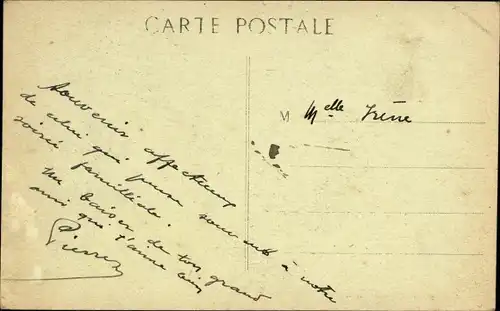 CARTE POSTALE
M Melle Irène
Souvenir affectueux
de celui qui pense souvent à notre
soirée familliale.
Un baiser de ton grand
ami qui t'aime
Pierre